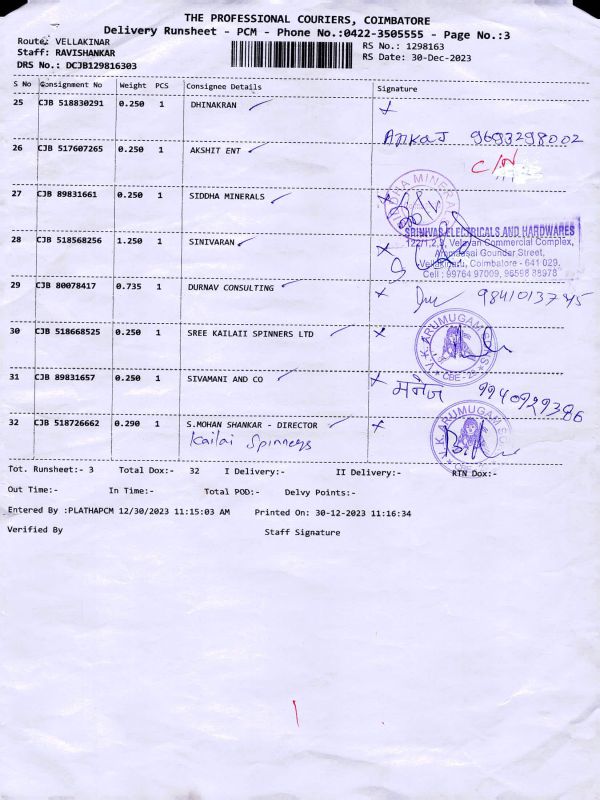 THE PROFESSIONAL COURIERS, COIMBATORE
Delivery Runsheet - PCM - Phone No.:0422-3505555 - Page No.:3
Route: VELLAKINAR
Staff: RAVISHANKAR
DRS No.: DCJB129816303
RS No.: 1298163
RS Date: 30-Dec-2023
S No Consignment No Weight PCS Consignee Details Signature
25 CJB 518830291 0.250 1 DHINAKRAN
9693298002
26 CJB 517607265 0.250 1 AKSHIT ENT C/N
27 CJB 89831661 0.250 1 SIDDHA MINERALS
SRINIVAS ELECTRICALS AND HARDWARES
122/1,2,3, Velavan Commercial Complex,
28 CJB 518568256 1.250 1 SINIVARAN
Gounder Street,
Coimbatore - 641 029.
Cell : 99764 97009, 96598 88978
29 CJB 80078417 0.735 1 DURNAV CONSULTING
V.K.ARUMUGAM
CBE-29
30 CJB 518668525 0.250 1 SREE KAILAII SPINNERS LTD
31 CJB 89831657 0.250 1 SIVAMANI AND CO मनोज 9940929386
32 CJB 518726662 0.290 1 S.MOHAN SHANKAR - DIRECTOR
Kailai Spinners
V.K.ARUMUGAM
Tot. Runsheet:- 3 Total Dox:- 32 I Delivery:- II Delivery:- RTN Dox:-
Out Time:- In Time:- Total POD:- Delvy Points:-
Entered By :PLATHAPCM 12/30/2023 11:15:03 AM Printed On: 30-12-2023 11:16:34
Verified By Staff Signature